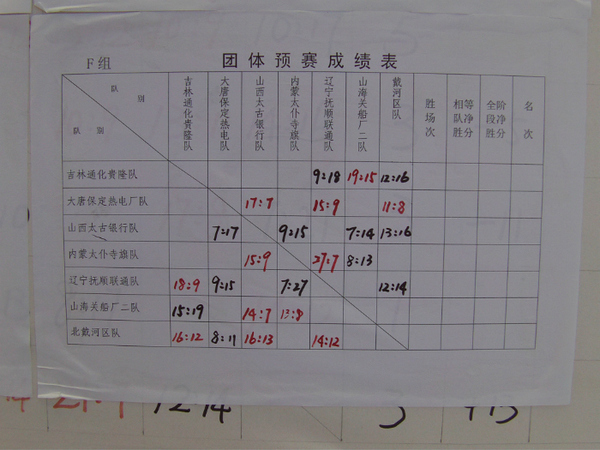 F组
团体预赛成绩表
队 别
队 别
吉林通化貴隆队 大唐保定热电队 山西太古银行队 内蒙太仆寺旗队 辽宁抚顺联通队 山海关船厂二队 戴河区队 胜场次 相等队净胜分 全阶段净胜分 名次
吉林通化貴隆队 9:18 19:15 12:16
大唐保定热电厂队 17:7 15:9 11:8
山西太古银行队 7:17 9:15 7:14 13:16
内蒙太仆寺旗队 15:9 27:7 8:13
辽宁抚顺联通队 18:9 9:15 7:27 12:14
山海关船厂二队 15:19 14:7 13:8
北戴河区队 16:12 8:11 16:13 14:12
12:14